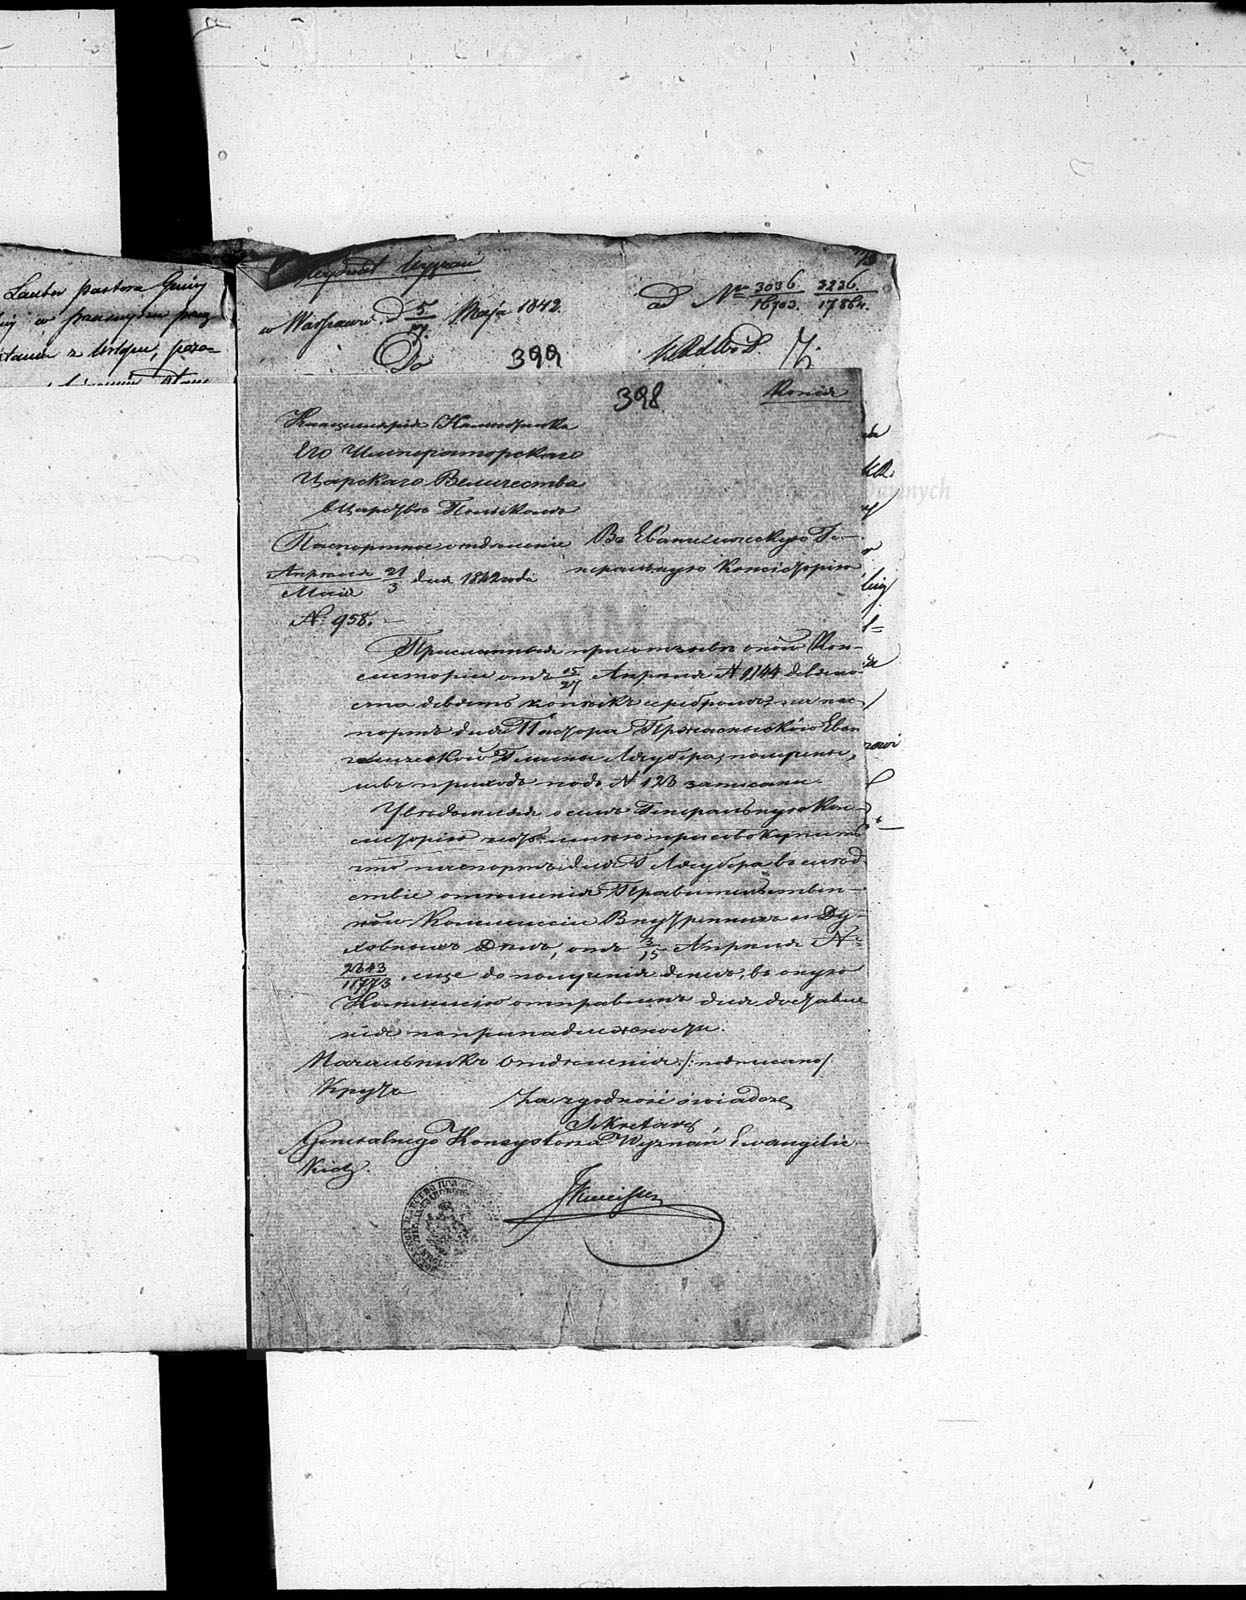 Lauber pastora Gminy
w
z Urlopu,
Wyznań
73
w Warszawie d. 5/17 Maja 1842.
ad Nr 3036/16703. 3236/17864.
Do
399
398
Копія
Канцелярія Намѣстника
Его Императорскаго
Царскаго Величества
въ Царствѣ Польскомъ
Паспортное отдѣленіе
Апрѣля 21 / Маія 3 дня 1842 года
№ 958.
Въ Евангелическую Ге-
неральную Консисторію
Присланныя при отзывѣ оной Кон-
систоріи отъ 15/27 Апрѣля № 1144 девяно-
сто девять копѣекъ серебромъ, на пас-
портъ для Пастора Еван
гелической Гмины Лаубера, получены,
и въ приходъ подъ № 123 записаны.
Увѣдомляя о семъ Генеральную Кон-
систорію честь имѣю присовокупить
что паспортъ для Г. Лаубера въ слѣд
ствіе отношенія Правительствен-
ной Коммиссіи Внутреннихъ и Ду-
ховныхъ Дѣлъ, отъ 3/15 Апрѣля №
2343/11773, еще до полученія денегъ, въ оную
Коммисію отправленъ для доставле
нія по принадлежности.
Начальникъ Отдѣленія /: подписано/
Крузе
Za zgodność świadczę
Sekretarz
Generalnego Konsystorza Wyznań Ewangelic-
kich.